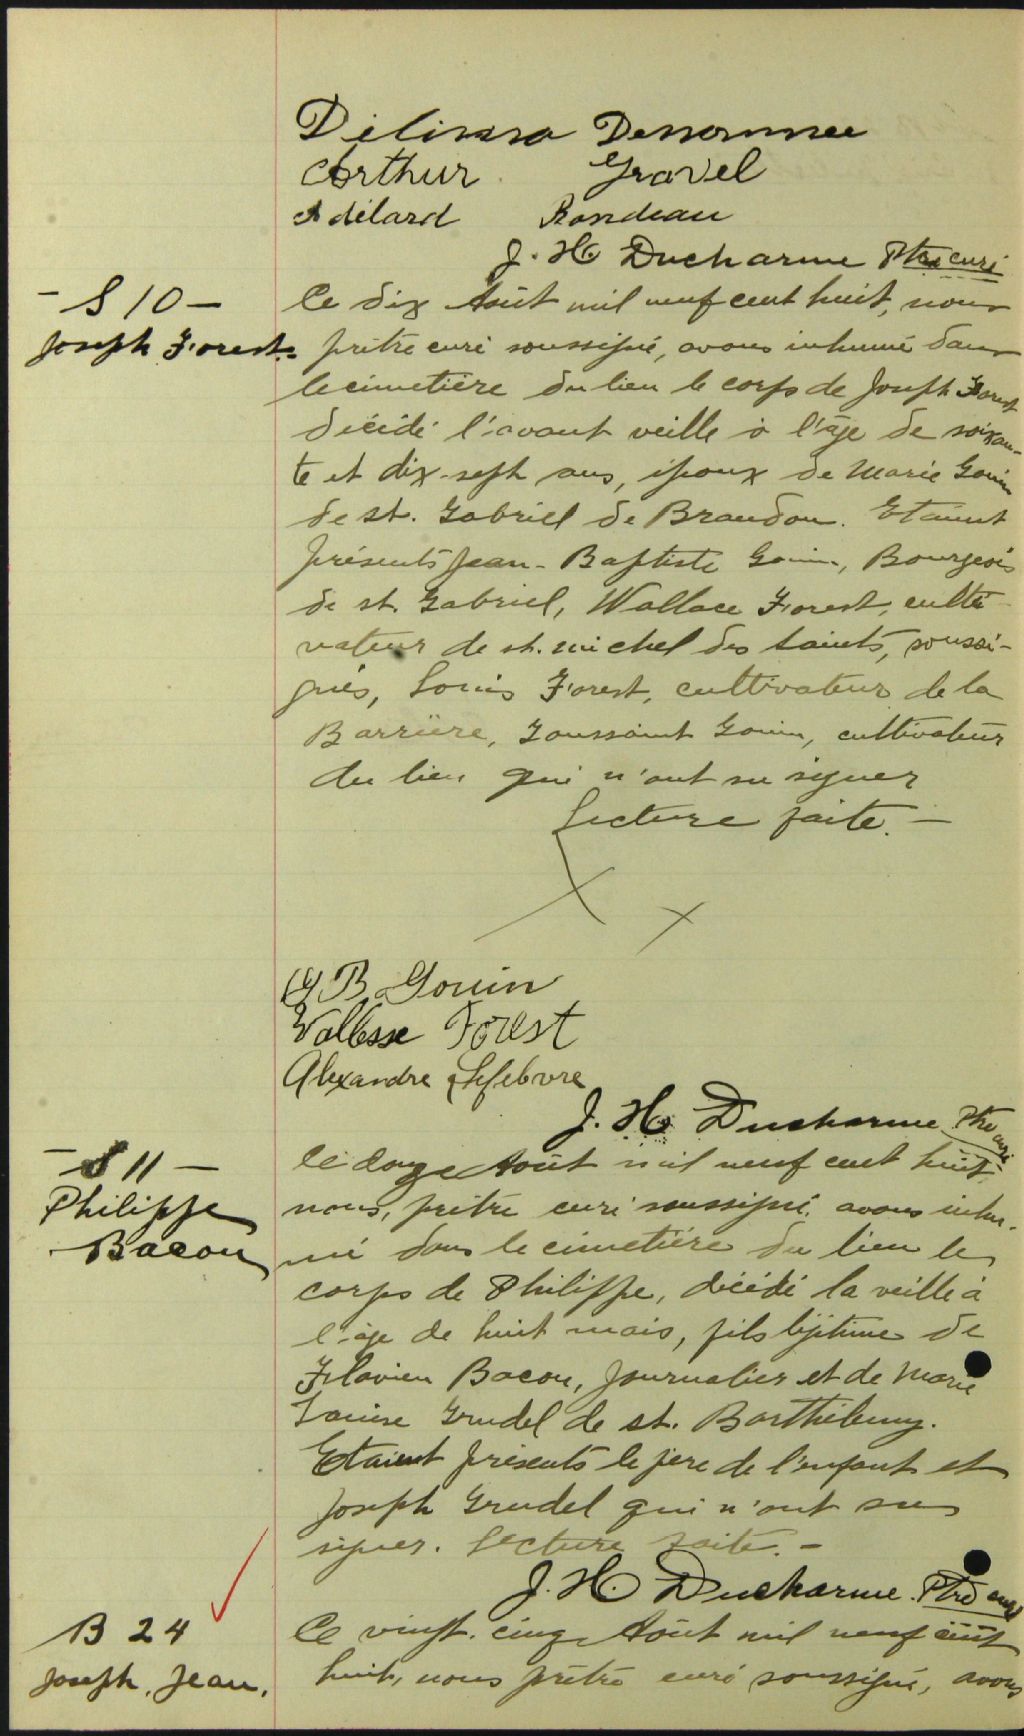 Délima Desrosiers
Arthur Gravel
Adélard Rondeau
J. H. Ducharme Ptre curé
- S 10 -
Joseph Forest.
Le dix Août mil neuf cent huit, nous
prêtre curé soussigné, avons inhumé dans
le cimetière du lieu le corps de Joseph Forest
décédé l'avant veille à l'âge de soixan-
te et dix-sept ans, époux de Marie Gouin
de st. Gabriel de Brandon. Etaient
présents Jean-Baptiste Gouin, Bourgeois
de st. Gabriel, Wallace Forest, culti-
vateur de st. michel des Saints, soussi-
gnés, Louis Forest, cultivateur de la
Barrière, Toussaint Gouin, cultivateur
du lieu qui n'ont su signer
Lecture faite. -
J B Gouin
Wallesse Forest
Alexandre Lefebvre
J. H. Ducharme Ptre curé
- S 11 -
Philippe
Bacon
Le douze Août mil neuf cent huit,
nous, prêtre curé soussigné, avons inhu-
mé dans le cimetière du lieu le
corps de Philippe, décédé la veille à
l'âge de huit mois, fils légitime de
Flavien Bacon, journalier et de Marie
Louise Grudel de st. Barthélemy.
Etaient présents le père de l'enfant et
Joseph Grudel qui n'ont su
signer. Lecture faite. -
J. H. Ducharme. Ptre curé
B 24
Joseph, Jean,
Le vingt-cinq Août mil neuf cent
huit, nous prêtre curé soussigné, avons